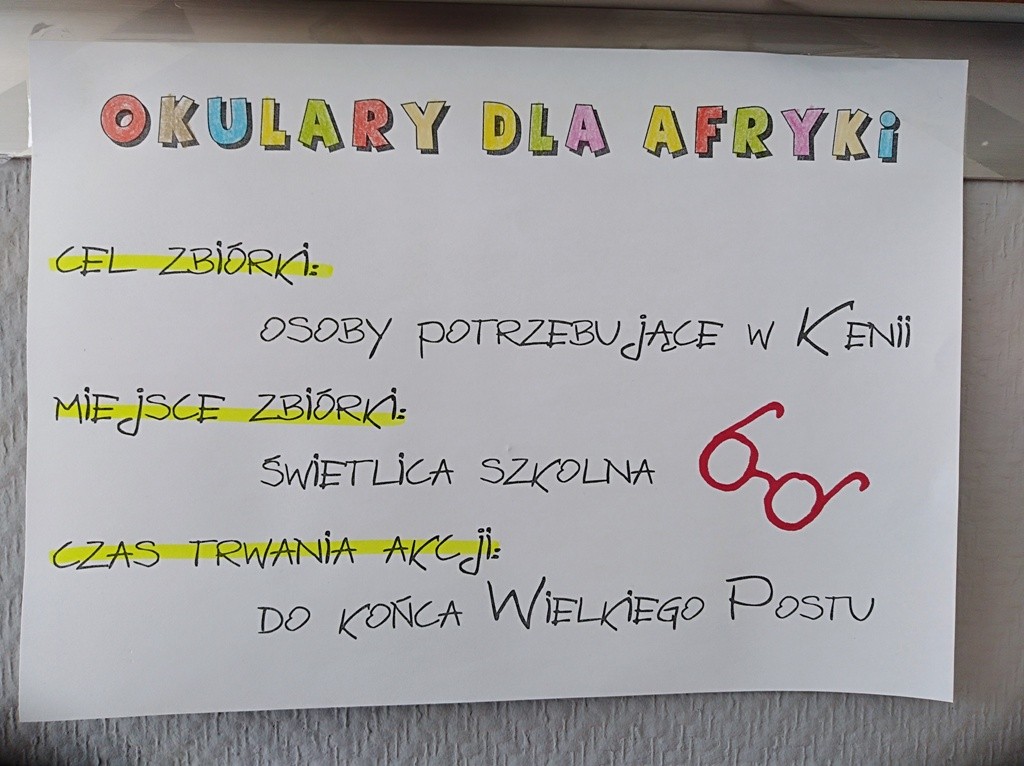 OKULARY DLA AFRYKi
CEL ZBiÓRKi:
OSOBY POTRZEBUjĄCE W KENii
MiEjSCE ZBiÓRKi:
ŚWiETLiCA SZKOLNA
CZAS TRWANiA AKCji:
DO KOŃCA WiELKiEGO POSTU